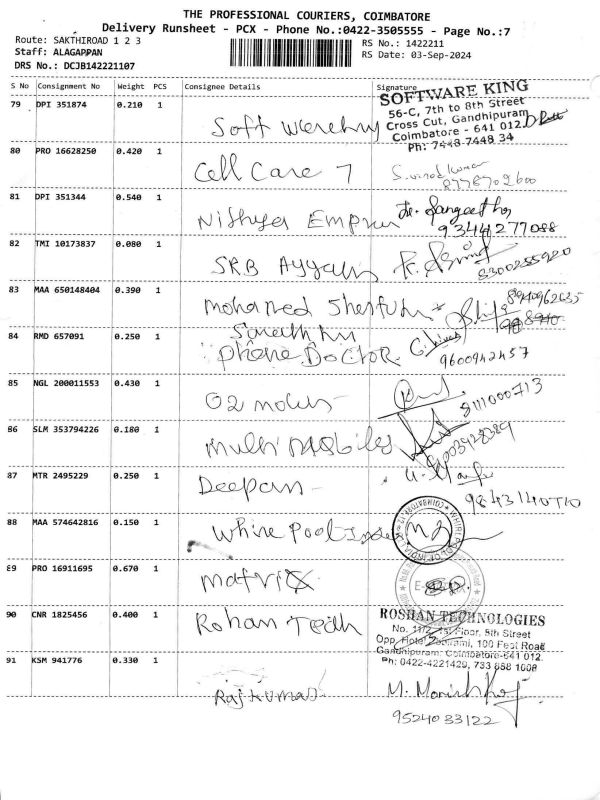 THE PROFESSIONAL COURIERS, COIMBATORE
Delivery Runsheet - PCX - Phone No.:0422-3505555 - Page No.:7
Route: SAKTHIROAD 1 2 3
RS No.: 1422211
Staff: ALAGAPPAN
RS Date: 03-Sep-2024
DRS No.: DCJB142221107
S No Consignment No Weight PCS Consignee Details Signature
79 DPI 351874 0.210 1 Soft
SOFTWARE KING
56-C, 7th to 8th Street
Cross Cut, Gandhipuram
Coimbatore - 641 012
Ph: 7448 7448 34
80 PRO 16628250 0.420 1 Cell Care 7 S. vinod kumar
8778702600
81 DPI 351344 0.540 1 Nithya Sangeetha
9344277088
82 TMI 10173837 0.080 1 SRB
8300255920
83 MAA 650148404 0.390 1 Mohamed
8940962635
84 RMD 657091 0.250 1 Phone DoCtoR
9600942457
85 NGL 200011553 0.430 1 O2
8111000713
86 SLM 353794226 0.180 1 Multi Mobiles
87 MTR 2495229 0.250 1 Deepan
88 MAA 574642816 0.150 1 Whirepool
89 PRO 16911695 0.670 1 matrix
90 CNR 1825456 0.400 1 Rohan Tech
ROSHAN TECHNOLOGIES
No. 11/2, 1st Floor, 5th Street
100 Feet Road
Gandhipuram, Coimbatore-641 012.
Ph: 0422-4221429, 733 888 1008
91 KSM 941776 0.330 1 Rajkumar M.
9524033122